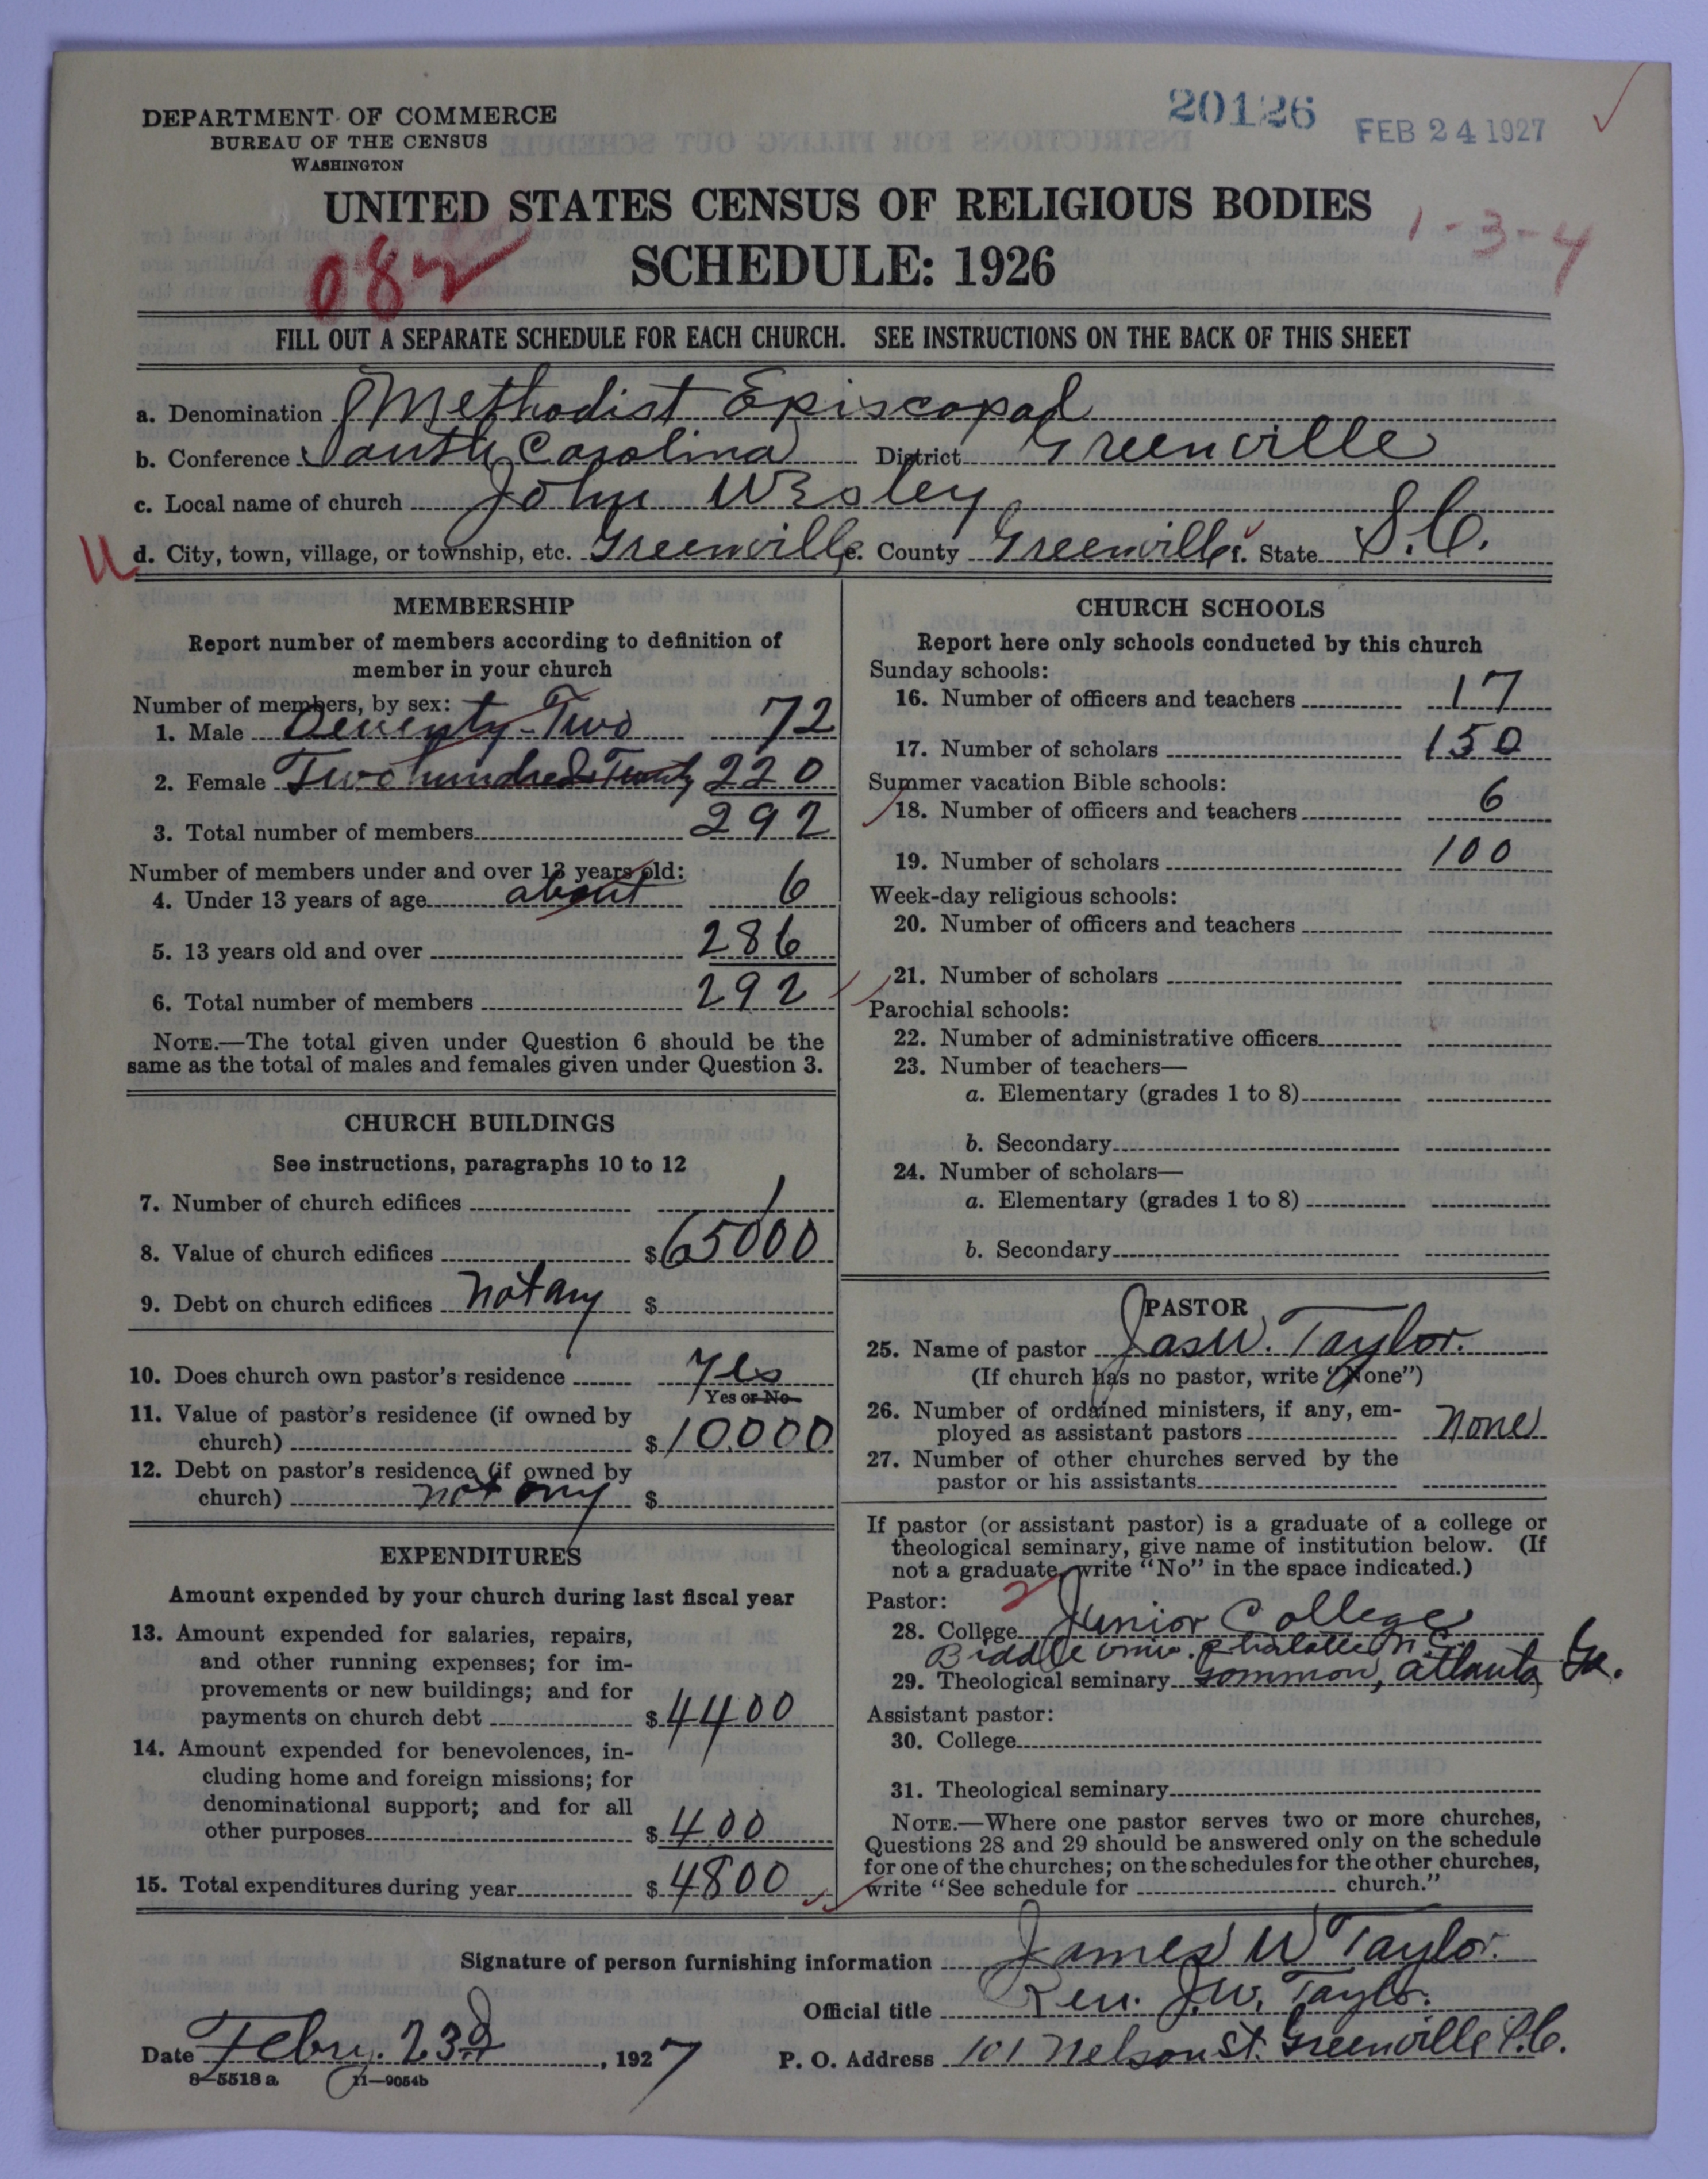 20126
FEB 24 1927
DEPARTMENT OF COMMERCE
BUREAU OF THE CENSUS
WASHINGTON
UNITED STATES CENSUS OF RELIGIOUS BODIES
1-3-4
082
SCHEDULE: 1926
FILL OUT A SEPARATE SCHEDULE FOR EACH CHURCH. SEE INSTRUCTIONS ON THE BACK OF THIS SHEET
a. Denomination Methodist Episcopal
b. Conference South Carolina District Greenville
c. Local name of church John Wesley
U d. City, town, village, or township, etc. Greenville e. County Greenville f. State S.C.
MEMBERSHIP
Report number of members according to definition of
member in your church
Number of members, by sex:
1. Male Seventy-Two 72
2. Female Two hundred Twenty 220
3. Total number of members 292
Number of members under and over 13 years old:
4. Under 13 years of age about 6
5. 13 years old and over 286
6. Total number of members 292
NOTE.—The total given under Question 6 should be the
same as the total of males and females given under Question 3.
CHURCH BUILDINGS
See instructions, paragraphs 10 to 12
7. Number of church edifices 1
8. Value of church edifices $65000
9. Debt on church edifices not any $
10. Does church own pastor's residence Yes
Yes or No
11. Value of pastor's residence (if owned by
church) $10,000
12. Debt on pastor's residence (if owned by
church) not any $
EXPENDITURES
Amount expended by your church during last fiscal year
13. Amount expended for salaries, repairs,
and other running expenses; for im-
provements or new buildings; and for
payments on church debt $4400
14. Amount expended for benevolences, in-
cluding home and foreign missions; for
denominational support; and for all
other purposes $400
15. Total expenditures during year $4800
CHURCH SCHOOLS
Report here only schools conducted by this church
Sunday schools:
16. Number of officers and teachers 17
17. Number of scholars 150
Summer vacation Bible schools:
18. Number of officers and teachers 6
19. Number of scholars 100
Week-day religious schools:
20. Number of officers and teachers
21. Number of scholars
Parochial schools:
22. Number of administrative officers
23. Number of teachers—
a. Elementary (grades 1 to 8)
b. Secondary
24. Number of scholars—
a. Elementary (grades 1 to 8)
b. Secondary
PASTOR
25. Name of pastor Jas W. Taylor.
(If church has no pastor, write "None")
26. Number of ordained ministers, if any, em-
ployed as assistant pastors None
27. Number of other churches served by the
pastor or his assistants
If pastor (or assistant pastor) is a graduate of a college or
theological seminary, give name of institution below. (If
not a graduate, write "No" in the space indicated.)
Pastor: 2
28. College Junior College
Biddle Univ. Charlotte N.C.
29. Theological seminary Gammon, Atlanta, Ga.
Assistant pastor:
30. College
31. Theological seminary
NOTE.—Where one pastor serves two or more churches,
Questions 28 and 29 should be answered only on the schedule
for one of the churches; on the schedules for the other churches,
write "See schedule for church."
Signature of person furnishing information James W Taylor.
Official title Rev. J.W. Taylor.
Date Febru. 23d, 1927 P. O. Address 101 Nelson St. Greenville S.C.
8-5518 a 11—9054b